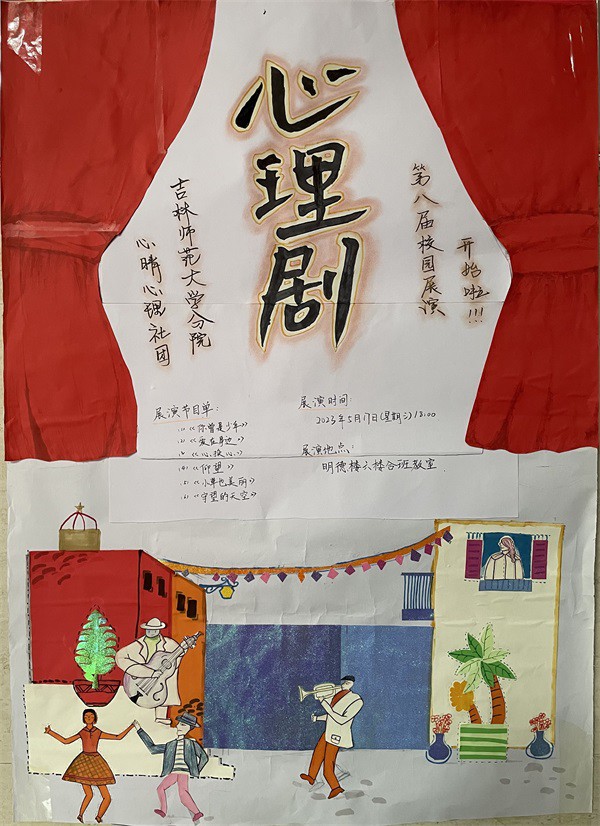 心理剧
第八届校园展演
开始啦!!!
吉林师范大学分院
心晴心理社团
展演节目单:
(1)《你曾是少年》
(2)《爱在身边》
(3)《心换心》
(4)《仰望》
(5)《小草也美丽》
(6)《守望的天空》
展演时间:
2023年5月17日(星期三)18:00
展演地点:
明德楼六楼合班教室